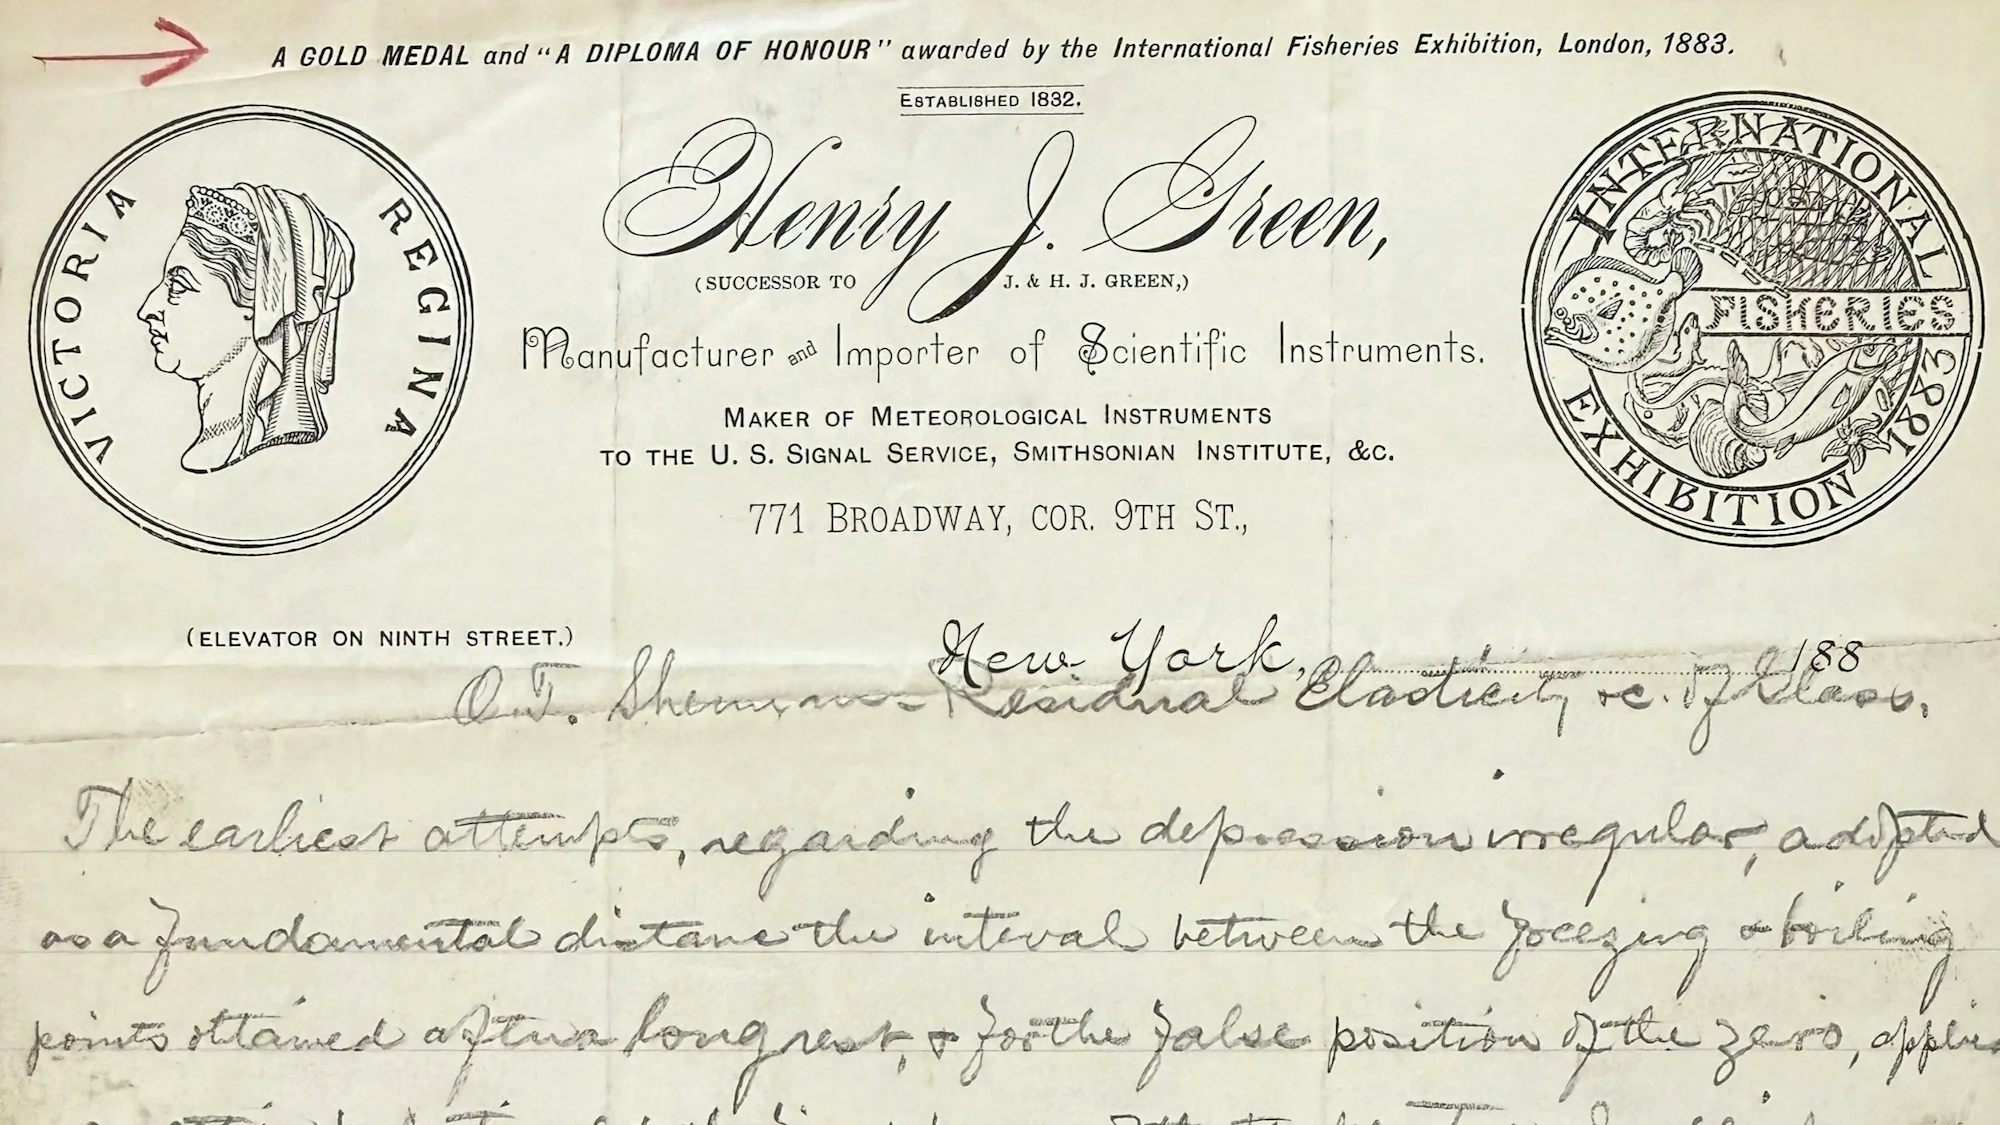 A GOLD MEDAL and "A DIPLOMA OF HONOUR" awarded by the International Fisheries Exhibition, London, 1883.
ESTABLISHED 1832.
VICTORIA REGINA
Henry J. Green,
(SUCCESSOR TO J. & H. J. GREEN,)
INTERNATIONAL
FISHERIES
EXHIBITION 1883
Manufacturer and Importer of Scientific Instruments.
MAKER OF METEOROLOGICAL INSTRUMENTS
TO THE U. S. SIGNAL SERVICE, SMITHSONIAN INSTITUTE, &C.
771 BROADWAY, COR. 9TH ST.,
(ELEVATOR ON NINTH STREET.)
New York, 188
O.T. Sherman - Residual Elasticity &c. of Glass.
The earliest attempts, regarding the depression irregular, adopted
as a fundamental distance the interval between the freezing & boiling
points obtained after a long rest, & for the false position of the zero,